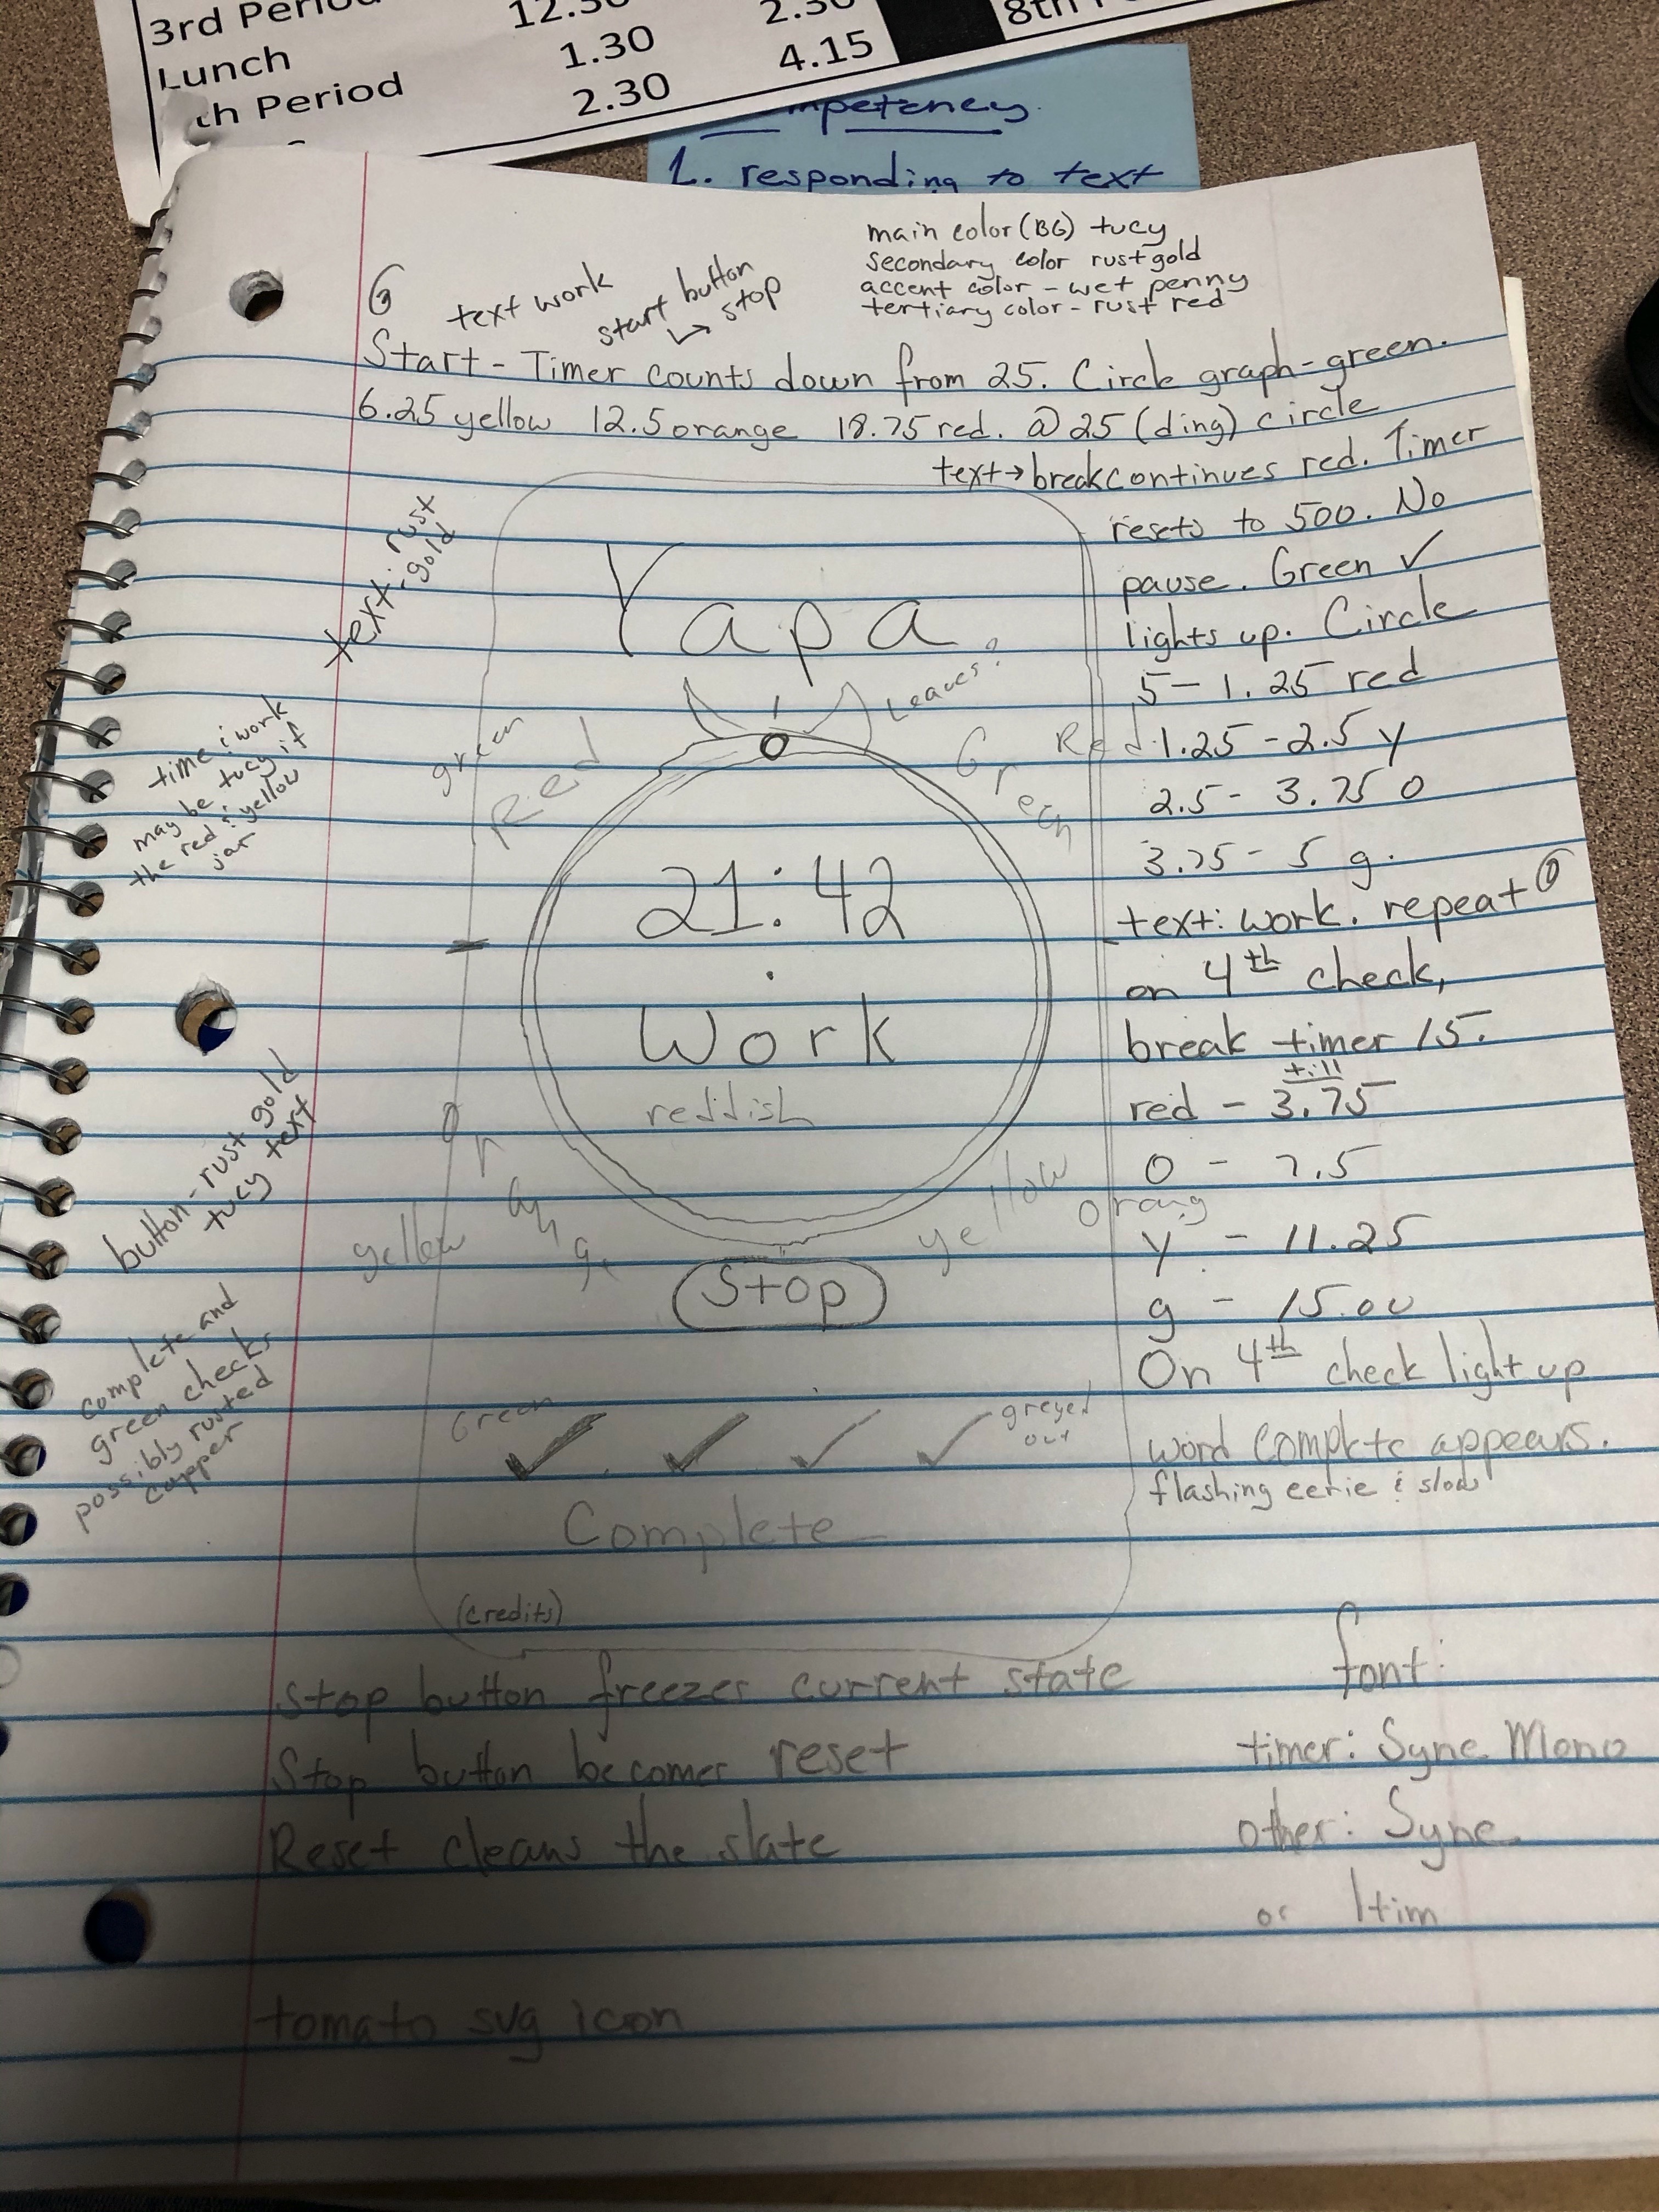 3rd Period 12.30 2.30
Lunch 1.30 4.15
th Period 2.30
8th
mpetency.
1. responding to text
main color (BG) tucy
secondary color rust gold
accent color - wet penny
tertiary color - rust red
text work
start button
↳ stop
Start - Timer counts down from 25. Circle graph - green.
6.25 yellow 12.5 orange 18.75 red. @ 25 (ding) circle
text → break continues red. Timer
resets to 500. No
pause. Green ✓
lights up. Circle
5 - 1.25 red
1.25 - 2.5 y
2.5 - 3.75 o
3.75 - 5 g.
text: work. repeat
on 4th check,
break timer 15.
till
red - 3.75
O - 7.5
y - 11.25
g - 15.00
On 4th check light up
word complete appears.
flashing eerie & slow
text: rust
- gold
time & work
may be tucy if
the red & yellow
jar
button - rust gold
tucy text
complete and
green checks
possibly rusted
copper
Yapa
Leaves?
green
Red
Green
Red
21:42
Work
reddish
Orange
yellow
yellow
Orang
Stop
Green
✓ ✓ ✓ ✓
greyed
out
Complete
(credits)
Stop button freezes current state
Stop button becomes reset
Reset cleans the slate
font:
timer: Syne Mono
other: Syne
or Itim
tomato svg icon